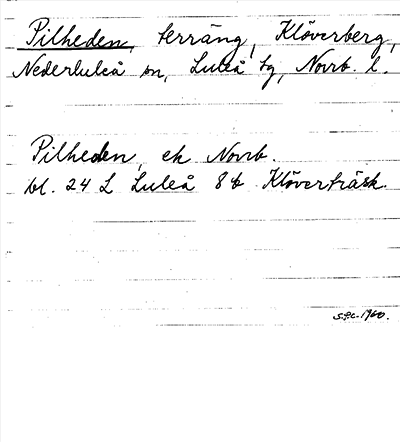 Pilheden, terräng, Klöverberg,
Nederluleå sn, Luleå tg, Norrb. l.
Pilheden, ek Norrb.
bl. 24 L Luleå 8 b Klöverträsk.
S.P.C. 1960.